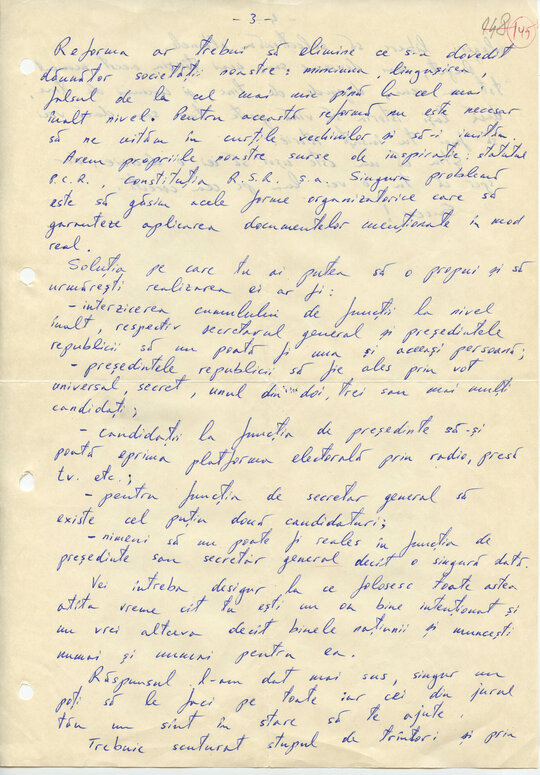 - 3 -
148 145
Reforma ar trebui să elimine ce s-a dovedit
dăunător societății noastre: minciuna, lingușirea,
falsul de la cel mai mic pînă la cel mai
înalt nivel. Pentru această reformă nu este necesar
să ne uităm în curțile vecinilor și să-i imităm.
Avem propriile noastre surse de inspirație: statutul
P.C.R., constituția R.S.R. ș.a. Singura problemă
este să găsim acele forme organizatorice care să
garanteze aplicarea documentelor menționate în mod
real.
Soluția pe care tu ai putea să o propui și să
urmărești realizarea ei ar fi:
- interzicerea cumulului de funcții la nivel
înalt, respectiv secretarul general și președintele
republicii să nu poată fi una și aceeași persoană;
- președintele republicii să fie ales prin vot
universal, secret, unul din doi, trei sau mai mulți
candidați;
- candidații la funcția de președinte să-și
poată exprima platforma electorală prin radio, presă
tv. etc.;
- pentru funcția de secretar general să
existe cel puțin două candidaturi;
- nimeni să nu poată fi reales în funcția de
președinte sau secretar general decît o singură dată.
Vei întreba desigur la ce folosesc toate astea
atîta vreme cît tu ești un om bine intenționat și
nu vrei altceva decît binele națiunii și muncești
numai și numai pentru ea.
Răspunsul l-am dat mai sus, singur nu
poți să le faci pe toate iar cei din jurul
tău nu sînt în stare să te ajute.
Trebuie scuturat stupul de trîntori și prin